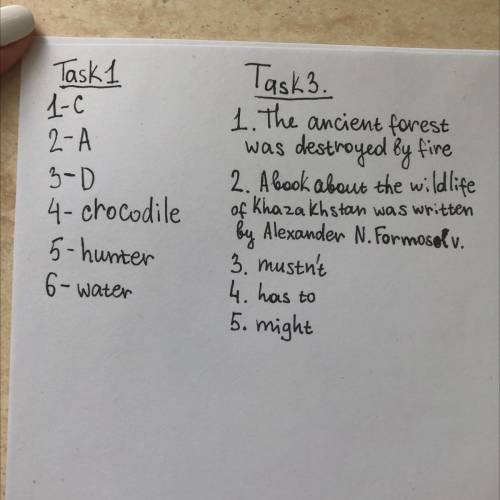 Task 1
1-C
2-A
3-D
4- crocodile
5- hunter
6- water
Task 3.
1. The ancient forest
was destroyed by fire
2. A book about the wildlife
of Khazakhstan was written
by Alexander N. Formosolv.
3. mustn't
4. has to
5. might